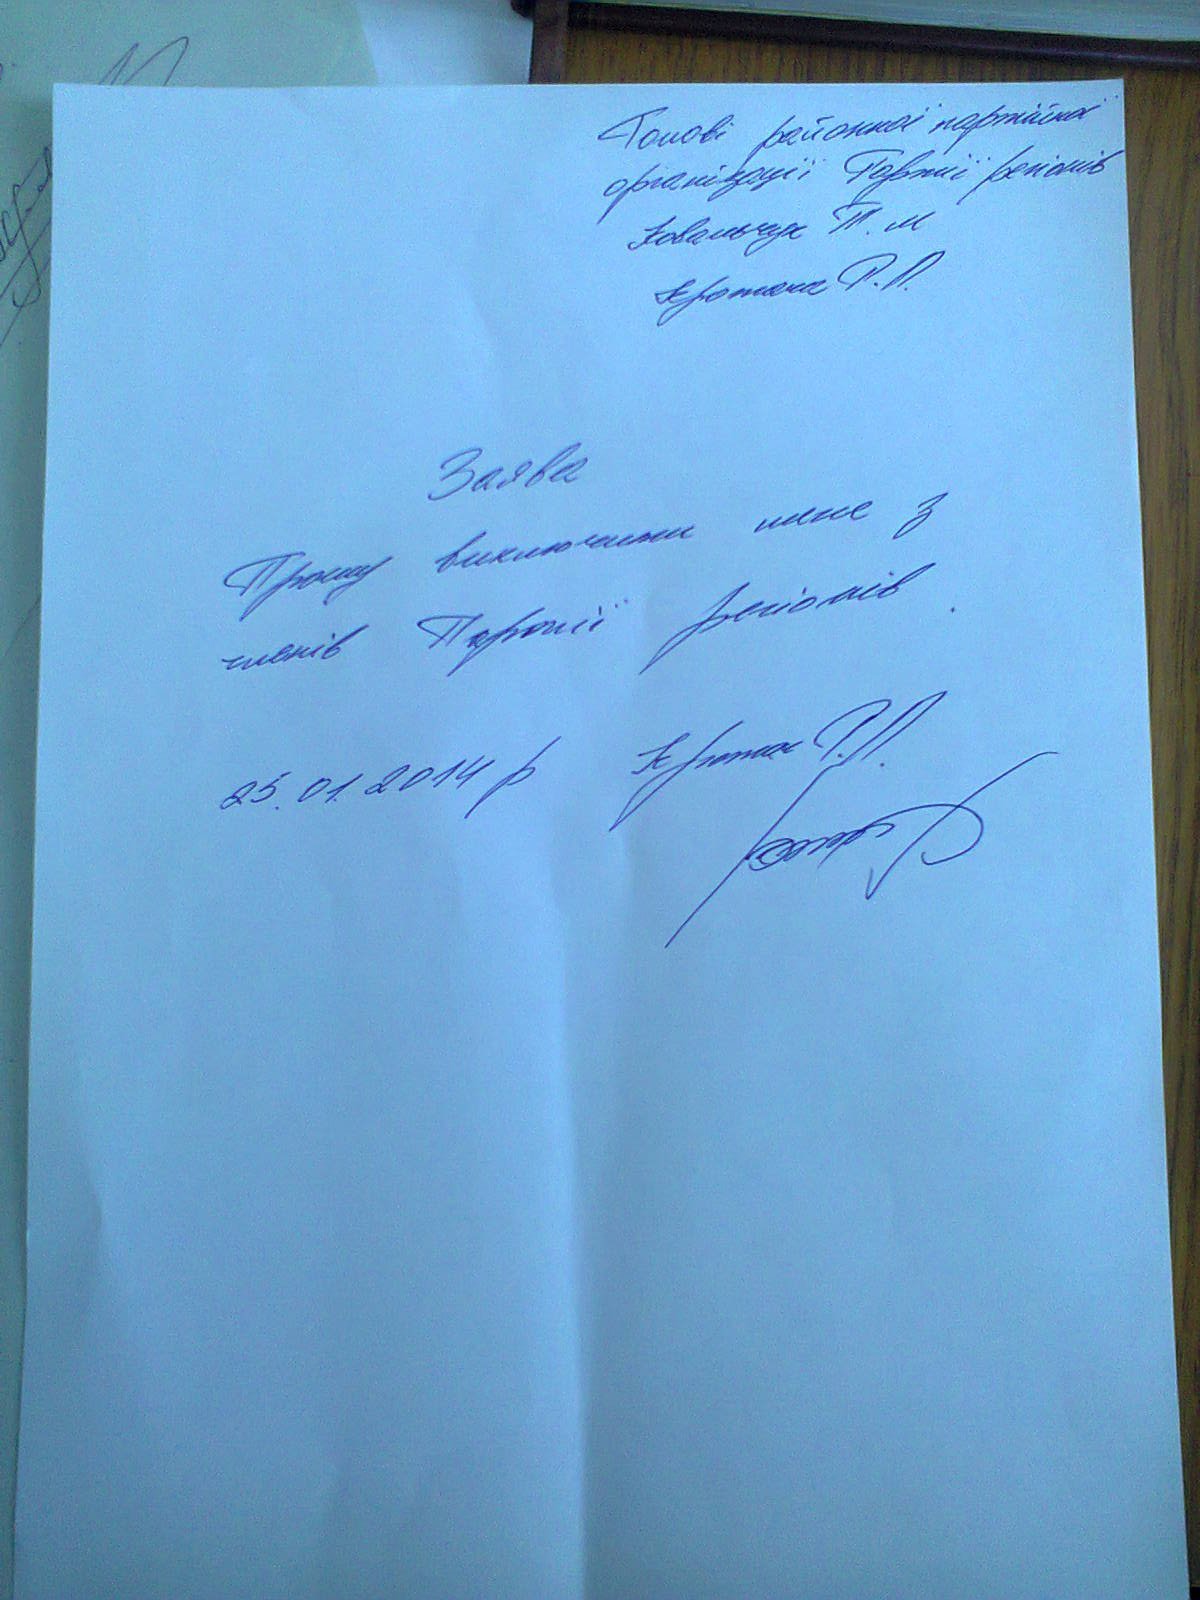 Голові районної партійної
організації Партії регіонів
Ковальчук Т. М
Кротика Р.П.
Заява
Прошу виключити мене з
членів Партії регіонів.
25.01.2014 р Кротик Р.П.